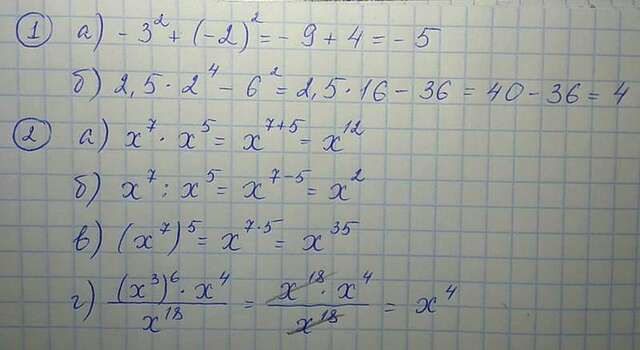 1 а) - 3² + (-2)² = - 9 + 4 = - 5
б) 2,5 · 2⁴ - 6² = 2,5 · 16 - 36 = 40 - 36 = 4
2 а) x⁷ · x⁵ = x⁷⁺⁵ = x¹²
б) x⁷ : x⁵ = x⁷⁻⁵ = x²
в) (x⁷)⁵ = x⁷·⁵ = x³⁵
г) (x³)⁶ · x⁴ / x¹⁸ = x¹⁸ · x⁴ / x¹⁸ = x⁴